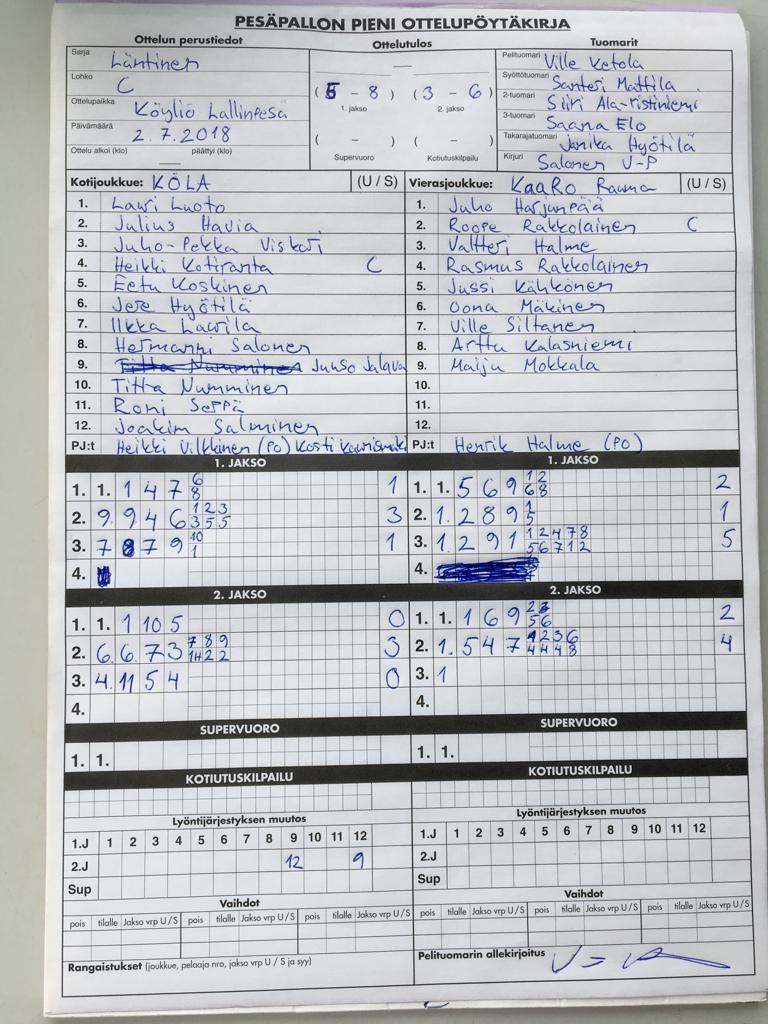 PESÄPALLON PIENI OTTELUPÖYTÄKIRJA
Ottelun perustiedot
Sarja Läntinen
Lohko C
Ottelupaikka Köyliö Lallinpesä
Päivämäärä 2.7.2018
Ottelu alkoi (klo) — päättyi (klo)
Ottelutulos
—
(5 - 8) (3 - 6)
1. jakso 2. jakso
( - ) ( - )
Supervuoro Kotiutuskilpailu
Tuomarit
Pelituomari Ville Ketola
Syöttötuomari Santeri Mattila
2-tuomari Siiri Ala-ristiniemi
3-tuomari Saana Elo
Takarajatuomari Janika Hyötilä
Kirjuri Salonen V-P
Kotijoukkue: KÖLA (U / S)
1. Lauri Luoto
2. Julius Havia
3. Juho-Pekka Viskari
4. Heikki Kotiranta C
5. Eetu Koskinen
6. Jere Hyötilä
7. Ilkka Laurila
8. Hermanni Salonen
9. Titta Numminen Juuso Jalava
10. Titta Numminen
11. Roni Seppä
12. Joakim Salminen
PJ:t Heikki Vilkkinen (PO) Kosti
Vierasjoukkue: KaaRo Rauma (U / S)
1. Juho Harjunpää
2. Roope Rakkolainen C
3. Valtteri Halme
4. Rasmus Rakkolainen
5. Jussi Kähkönen
6. Oona Mäkinen
7. Ville Siltanen
8. Arttu Kalasniemi
9. Maiju Mokkala
10.
11.
12.
PJ:t Henrik Halme (PO)
1. JAKSO
1. 1. 1 4 7 6 1
8
2. 9. 9 4 6 1 2 3 3
3 5 5
3. 7 8 7 9 10 1
1
4.
1. JAKSO
1. 1. 5 6 9 1 2 2
6 8
2. 1. 2 8 9 1 1
5
3. 1. 2 9 1 1 2 4 7 8 5
5 6 7 1 2
4.
2. JAKSO
1. 1. 1 10 5 0
2. 6. 6. 7 3 7 8 9 3
11 2 2
3. 4. 11 5 4 0
4.
2. JAKSO
1. 1. 1 6 9 2 3 2
5 6
2. 1. 5 4 7 1 2 3 6 4
4 4 4 8
3. 1
4.
SUPERVUORO
1. 1.
SUPERVUORO
1. 1.
KOTIUTUSKILPAILU
KOTIUTUSKILPAILU
Lyöntijärjestyksen muutos
1.J 1 2 3 4 5 6 7 8 9 10 11 12
2.J 12 9
Sup
Lyöntijärjestyksen muutos
1.J 1 2 3 4 5 6 7 8 9 10 11 12
2.J
Sup
Vaihdot
pois tilalle Jakso vrp U / S pois tilalle Jakso vrp U / S pois tilalle Jakso vrp U / S
Vaihdot
pois tilalle Jakso vrp U / S pois tilalle Jakso vrp U / S pois tilalle Jakso vrp U / S
Rangaistukset (joukkue, pelaaja nro, jakso vrp U / S ja syy)
Pelituomarin allekirjoitus